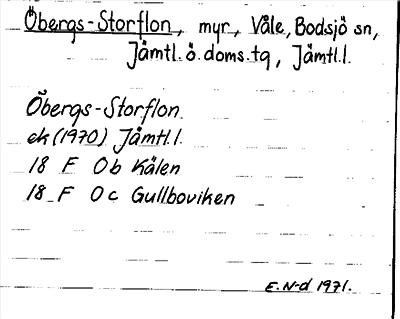 Öbergs-Storflon, myr, Våle, Bodsjö sn,
Jämtl.ö.doms.tg, Jämtl.l.
Öbergs-Storflon
ek (1970) Jämtl.l.
18 F 0b Kälen
18 F 0c Gullboviken
E.N-d 1971.